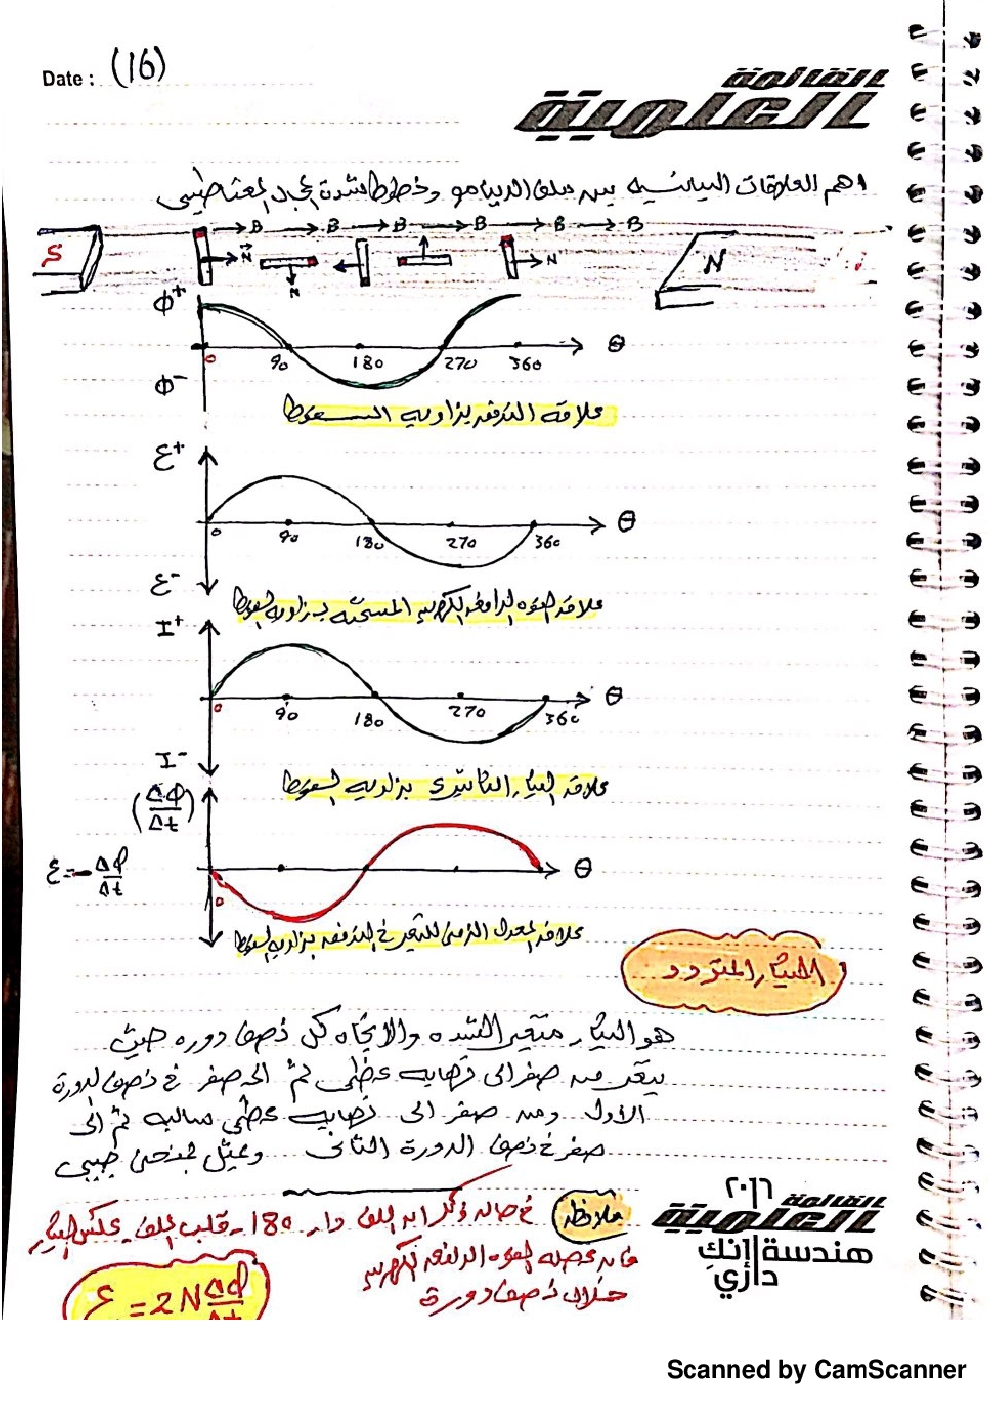 Date : (16)
القائمة
العلمية
اهم العلاقات البيانية بين ملف الدينامو وخطوط شدة المجال المغناطيسي
→ B → B → B → B → B → B
S N N N N
Φ+
Φ-
0 90 180 270 360 θ
علاقة التدفق بزاوية السقوط
ε+
ε-
0 90 180 270 360 θ
علاقة القوة الدافعة الكهربية المستحثة بزاوية السقوط
I+
I-
0 90 180 270 360 θ
علاقة التيار التأثيري بزاوية السقوط
(ΔΦ/Δt)
ε = - ΔΦ/Δt
0 θ
علاقة المعدل الزمني للتغير في التدفق بزاوية السقوط
التيار المتردد
هو التيار متغير الشده والاتجاه كل نصف دوره حيث
يتغير من صفر الى نهايه عظمى ثم الى صفر في نصف الدورة
الاول ومن صفر الى نهايه عظمى سالبه ثم الى
صفر في نصف الدورة الثانى ويمثل بمنحنى جيبى
ملاحظه في حاله ذكر ان الملف دار 180 - قلب الملف - عكس التيار
فان محصله القوه الدافعه الكهربيه
خلال نصف دورة
ε = 2N ΔΦ/Δt
٢٠١٦
القائمة
العلمية
هندسة إنك
داري
Scanned by CamScanner